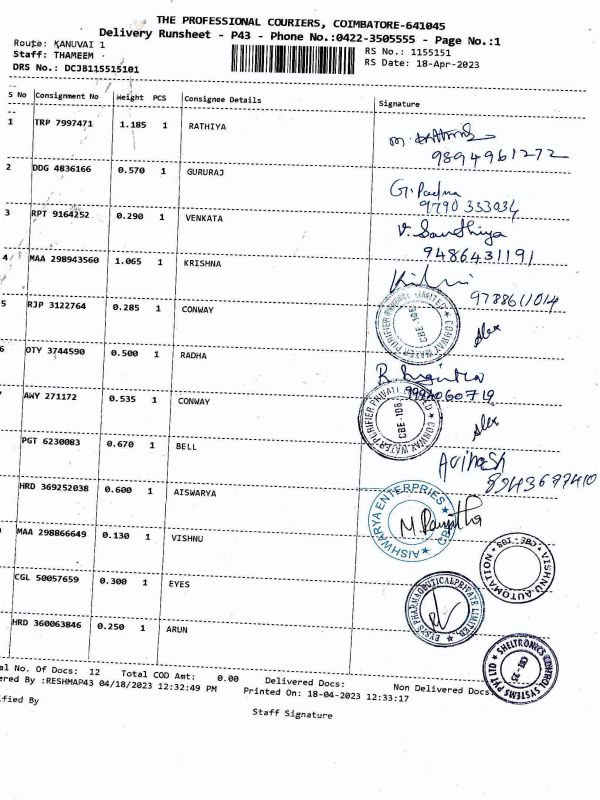 THE PROFESSIONAL COURIERS, COIMBATORE-641045
Delivery Runsheet - P43 - Phone No.:0422-3505555 - Page No.:1
Route: KANUVAI 1
RS No.: 1155151
Staff: THAMEEM
RS Date: 18-Apr-2023
DRS No.: DCJB115515101
S No Consignment No Weight PCS Consignee Details Signature
1 TRP 7997471 1.185 1 RATHIYA
9894961272
2 DDG 4836166 0.570 1 GURURAJ
G. Padma
9790 333034
3 RPT 9164252 0.290 1 VENKATA
V. Sandhiya
9486431191
4 MAA 298943560 1.065 1 KRISHNA
9788611014
5 RJP 3122764 0.285 1 CONWAY
CONWAY WATER PURIFIER PRIVATE LIMITED ★
CBE-108
6 OTY 3744590 0.500 1 RADHA
AWY 271172 0.535 1 CONWAY
CONWAY WATER PURIFIER PRIVATE LIMITED ★
CBE-108
PGT 6230083 0.670 1 BELL
Avinash
HRD 369252038 0.600 1 AISWARYA
★ AISHWARYA ENTERPRIES ★
MAA 298866649 0.130 1 VISHNU
★ VISHNU AUTOMATION ★
CGL 50057659 0.300 1 EYES
HRD 360063846 0.250 1 ARUN
SHELTRONICS CONTROL SYSTEMS PVT LTD ★
al No. Of Docs: 12 Total COD Amt: 0.00 Delivered Docs: Non Delivered Docs
ered By :RESHMAP43 04/18/2023 12:32:49 PM Printed On: 18-04-2023 12:33:17
ified By
Staff Signature